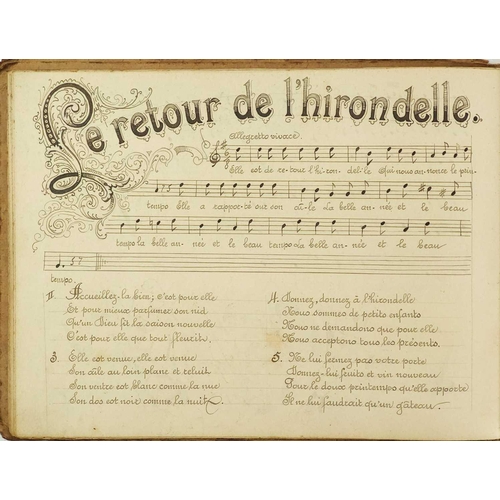 Le retour de l'hirondelle.
Allegretto vivace.
Elle est de re-tour l'hi-ron-del-le Qui nous an-nonce le prin-
temps Elle a rappor-té sur son aî-le La belle an-née et le beau
temps La belle an-née et le beau temps La belle an-née et le beau
temps.
II. Accueillez-la bien; c'est pour elle
Et pour mieux parfumer son nid
Qu'un Dieu fit la saison nouvelle
C'est pour elle que tout fleurit.
3. Elle est venue, elle est venue
Son aîle au loin plane et reluit
Son ventre est blanc comme la nue
Son dos est noir comme la nuit.
4. Donnez, donnez à l'hirondelle
Nous sommes de petits enfants
Nous ne demandons que pour elle
Nous acceptons tous les présents.
5. Ne lui fermez pas votre porte
Donnez-lui fruits et vin nouveau
Pour le doux printemps qu'elle apporte
Il ne faudrait qu'un gâteau.